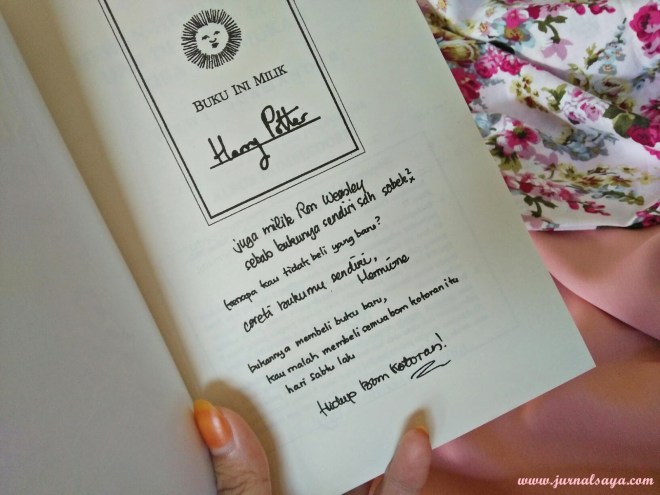 BUKU INI MILIK
Harry Potter
juga milik Ron Weasley
sebab bukunya sendiri sdh sobek²
kenapa kau tidak beli yang baru?
coreti bukumu sendiri,
Hermione
bukannya membeli buku baru,
kau malah membeli semua bom kotoran itu
hari sabtu lalu
Hidup bom kotoran!
www.jurnalsaya.com